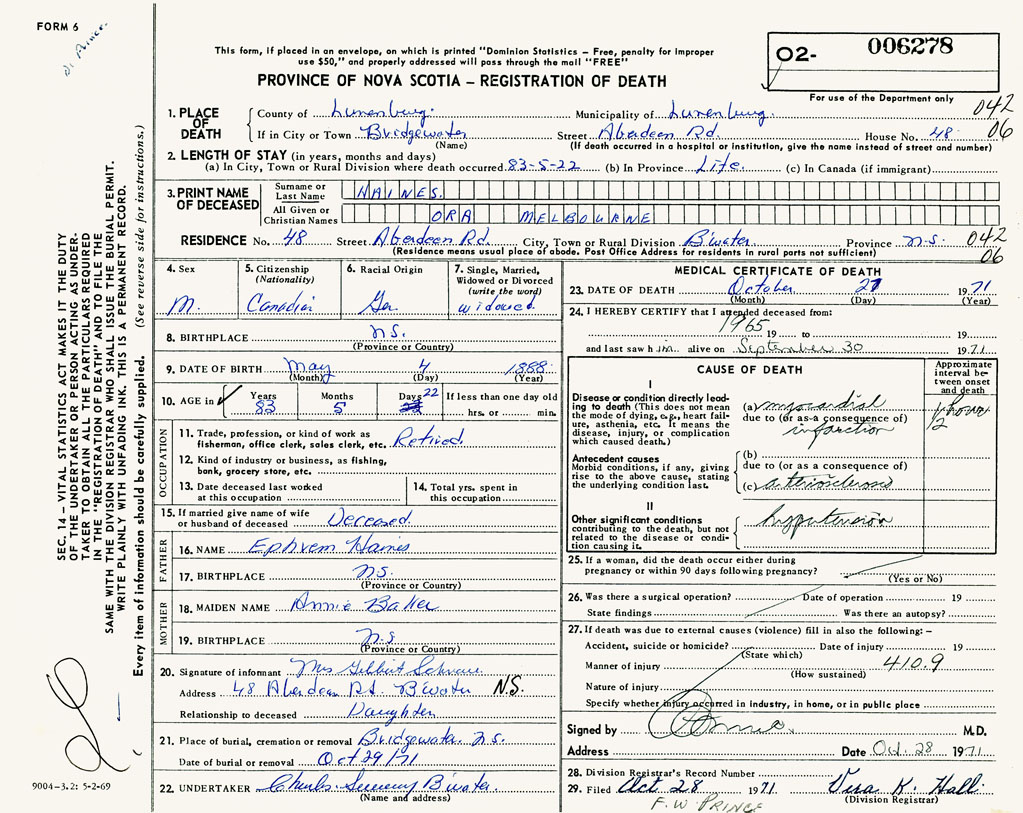 FORM 6
Dr Prince.
This form, if placed in an envelope, on which is printed "Dominion Statistics – Free, penalty for improper
use $50," and properly addressed will pass through the mail "FREE"
PROVINCE OF NOVA SCOTIA – REGISTRATION OF DEATH
O2- 006278
For use of the Department only
042
06
1. PLACE OF DEATH
County of Lunenburg. Municipality of Lunenburg.
If in City or Town Bridgewater Street Aberdeen Rd. House No. 48
(Name) (If death occurred in a hospital or institution, give the name instead of street and number)
2. LENGTH OF STAY (in years, months and days)
(a) In City, Town or Rural Division where death occurred 83-5-22 (b) In Province Life. (c) In Canada (if immigrant)
3. PRINT NAME OF DECEASED
Surname or Last Name HAINES.
All Given or Christian Names ORA MELBOURNE
RESIDENCE No. 48 Street Aberdeen Rd. City, Town or Rural Division B'water Province N.S. 042
(Residence means usual place of abode. Post Office Address for residents in rural parts not sufficient) 06
4. Sex
M.
5. Citizenship (Nationality)
Canadian
6. Racial Origin
Ger
7. Single, Married, Widowed or Divorced (write the word)
widowed
8. BIRTHPLACE N.S.
(Province or Country)
9. DATE OF BIRTH May 4 1888
(Month) (Day) (Year)
10. AGE in Years Months Days If less than one day old
83 5 22 hrs. or min.
OCCUPATION
11. Trade, profession, or kind of work as
fisherman, office clerk, sales clerk, etc. Retired
12. Kind of industry or business, as fishing,
bank, grocery store, etc.
13. Date deceased last worked
at this occupation
14. Total yrs. spent in
this occupation
15. If married give name of wife
or husband of deceased Deceased
FATHER
16. NAME Ephrem Haines
17. BIRTHPLACE N.S.
(Province or Country)
MOTHER
18. MAIDEN NAME Annie Baker
19. BIRTHPLACE N.S
(Province or Country)
20. Signature of informant Mrs Gilbert
Address 48 Aberdeen Rd. B'water N.S.
Relationship to deceased Daughter
21. Place of burial, cremation or removal Bridgewater N.S.
Date of burial or removal Oct 29/71
22. UNDERTAKER B'water
(Name and address)
MEDICAL CERTIFICATE OF DEATH
23. DATE OF DEATH October 27 1971
(Month) (Day) (Year)
24. I HEREBY CERTIFY that I attended deceased from:
1965 19 to 19
and last saw him alive on September 30 1971
CAUSE OF DEATH
Approximate interval between onset and death
I
Disease or condition directly leading to death (This does not mean the mode of dying, e.g., heart failure, asthenia, etc. It means the disease, injury, or complication which caused death.)
(a) myocardial
due to (or as a consequence of)
infarction
1/2 hour
Antecedent causes
Morbid conditions, if any, giving rise to the above cause, stating the underlying condition last.
(b)
due to (or as a consequence of)
(c)
II
Other significant conditions
contributing to the death, but not related to the disease or condition causing it.
hypertension
25. If a woman, did the death occur either during
pregnancy or within 90 days following pregnancy?
(Yes or No)
26. Was there a surgical operation? Date of operation 19
State findings Was there an autopsy?
27. If death was due to external causes (violence) fill in also the following: –
Accident, suicide or homicide? Date of injury 19
(State which)
Manner of injury 410.9
(How sustained)
Nature of injury
Specify whether injury occurred in industry, in home, or in public place
Signed by M.D.
Address Date Oct. 28 1971
28. Division Registrar's Record Number
29. Filed Oct 28 1971 Vera K. Hall.
(Division Registrar)
F. W PRINCE
SEC. 14 – VITAL STATISTICS ACT MAKES IT THE DUTY
OF THE UNDERTAKER OR PERSON ACTING AS UNDER-
TAKER TO OBTAIN ALL THE PARTICULARS REQUIRED
IN THE "REGISTRATION OF DEATH" AND TO FILE THE
SAME WITH THE DIVISION REGISTRAR WHO SHALL ISSUE THE BURIAL PERMIT.
WRITE PLAINLY WITH UNFADING INK. THIS IS A PERMANENT RECORD.
Every item of information should be carefully supplied. (See reverse side for instructions.)
9004–3.2: 5-2-69